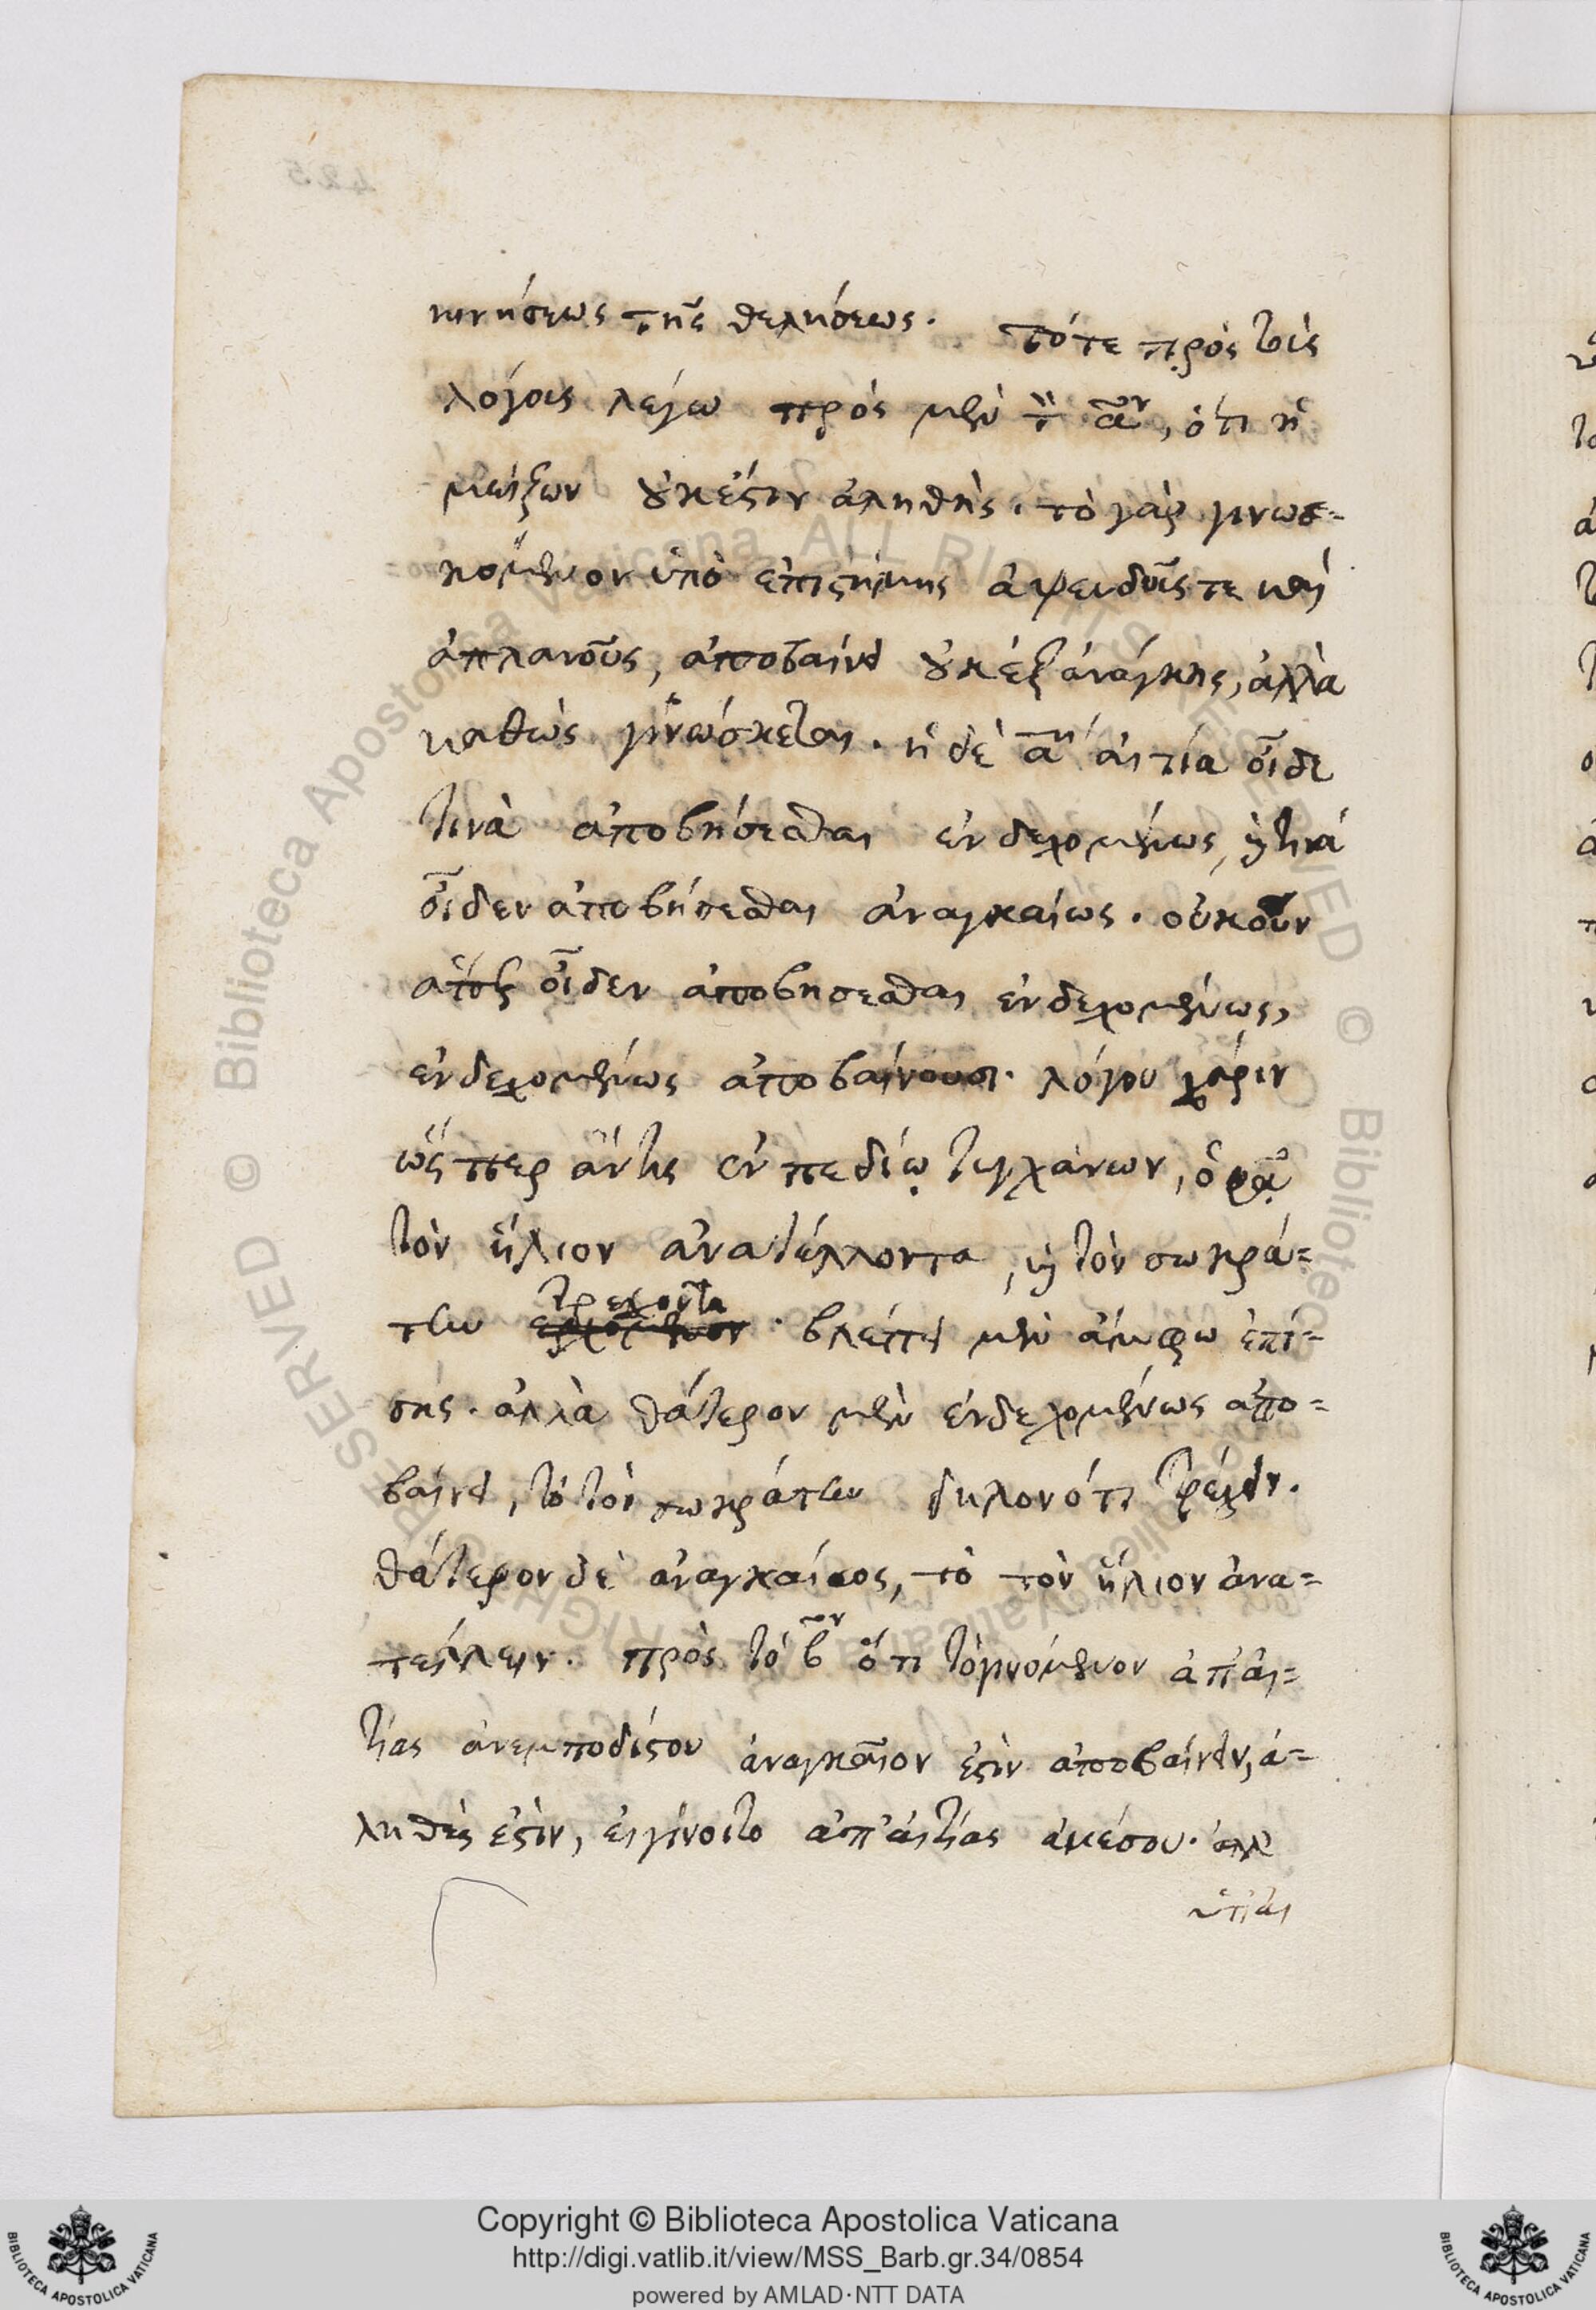 κινήσεως τῆς θελήσεως. τότε πρὸς τοὶς
λόγοις λέγω πρὸς μὲν τὸ αον, ὅτι ἡ
μείζων οὐκέστιν ἀληθὴς. τὸ γὰρ γινωσ=
κόμενον ὑπὸ ἐπιστήμης ἀψευδοῦς τε καὶ
ἀπλανοῦς, ἀποβαίνει οὐκ ἐξ ἀνάγκης, ἀλλὰ
καθὼς γινώσκεται. ἡ δὲ αη αἰτία οἶδε
τινὰ ἀποβήσεσθαι ἐνδεχομένως, καὶ τινά
οἶδεν ἀποβήσεσθαι ἀναγκαίως. οὐκοῦν
οἶδεν ἀποβησεσθαι ἐνδεχομένως,
ἐνδεχομένως ἀποβαίνουσι. λόγου χάριν
ὥςπερ ἄντις ἐν πεδίῳ τυγχάνων, ὁρᾷ
τὸν ἥλιον ἀνατέλλοντα, καὶ τὸν σωκρά=
την τρέχοντα ἐρχόμενον. βλέπει μὲν ἄμφω ἐπί=
σης. ἀλλὰ θάτερον μὲν ἐνδεχομένως ἀπο=
βαίνει, τὸ τὸν σωκράτην δηλονότι τρέχειν.
θάτερον δὲ ἀναγκαίως, τὸ τὸν ἥλιον ἀνα=
τέλλειν. πρὸς τὸ βον ὅτι τὸ γινόμενον ἀπ' αἰ=
τίας ἀνεμποδίστου ἀναγκαῖον ἐστὶν ἀποβαίνειν, ἀ=
ληθὲς ἐστὶν, εἰ γίνοιτο ἀπ' αἰτίας ἀμέσου. ἀλλ'
ὑπ' αἰ
Copyright © Biblioteca Apostolica Vaticana
http://digi.vatlib.it/view/MSS_Barb.gr.34/0854
powered by AMLAD·NTT DATA